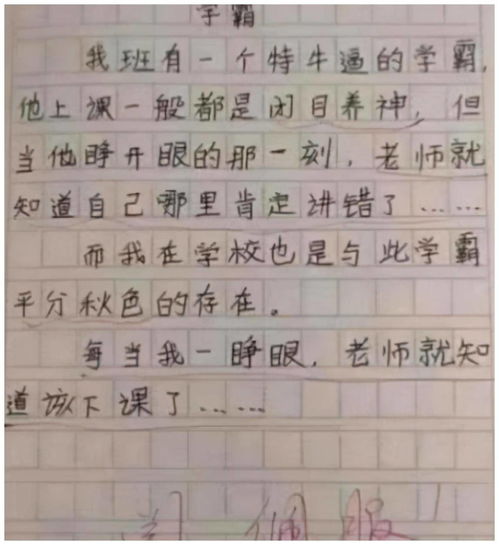 学霸
我班有一个特牛逼的学霸,
他上课一般都是闭目养神,但
当他睁开眼的那一刻,老师就
知道自己哪里肯定讲错了……
而我在学校也是与此学霸
平分秋色的存在。
每当我一睁眼,老师就知
道该下课了……
佩服!